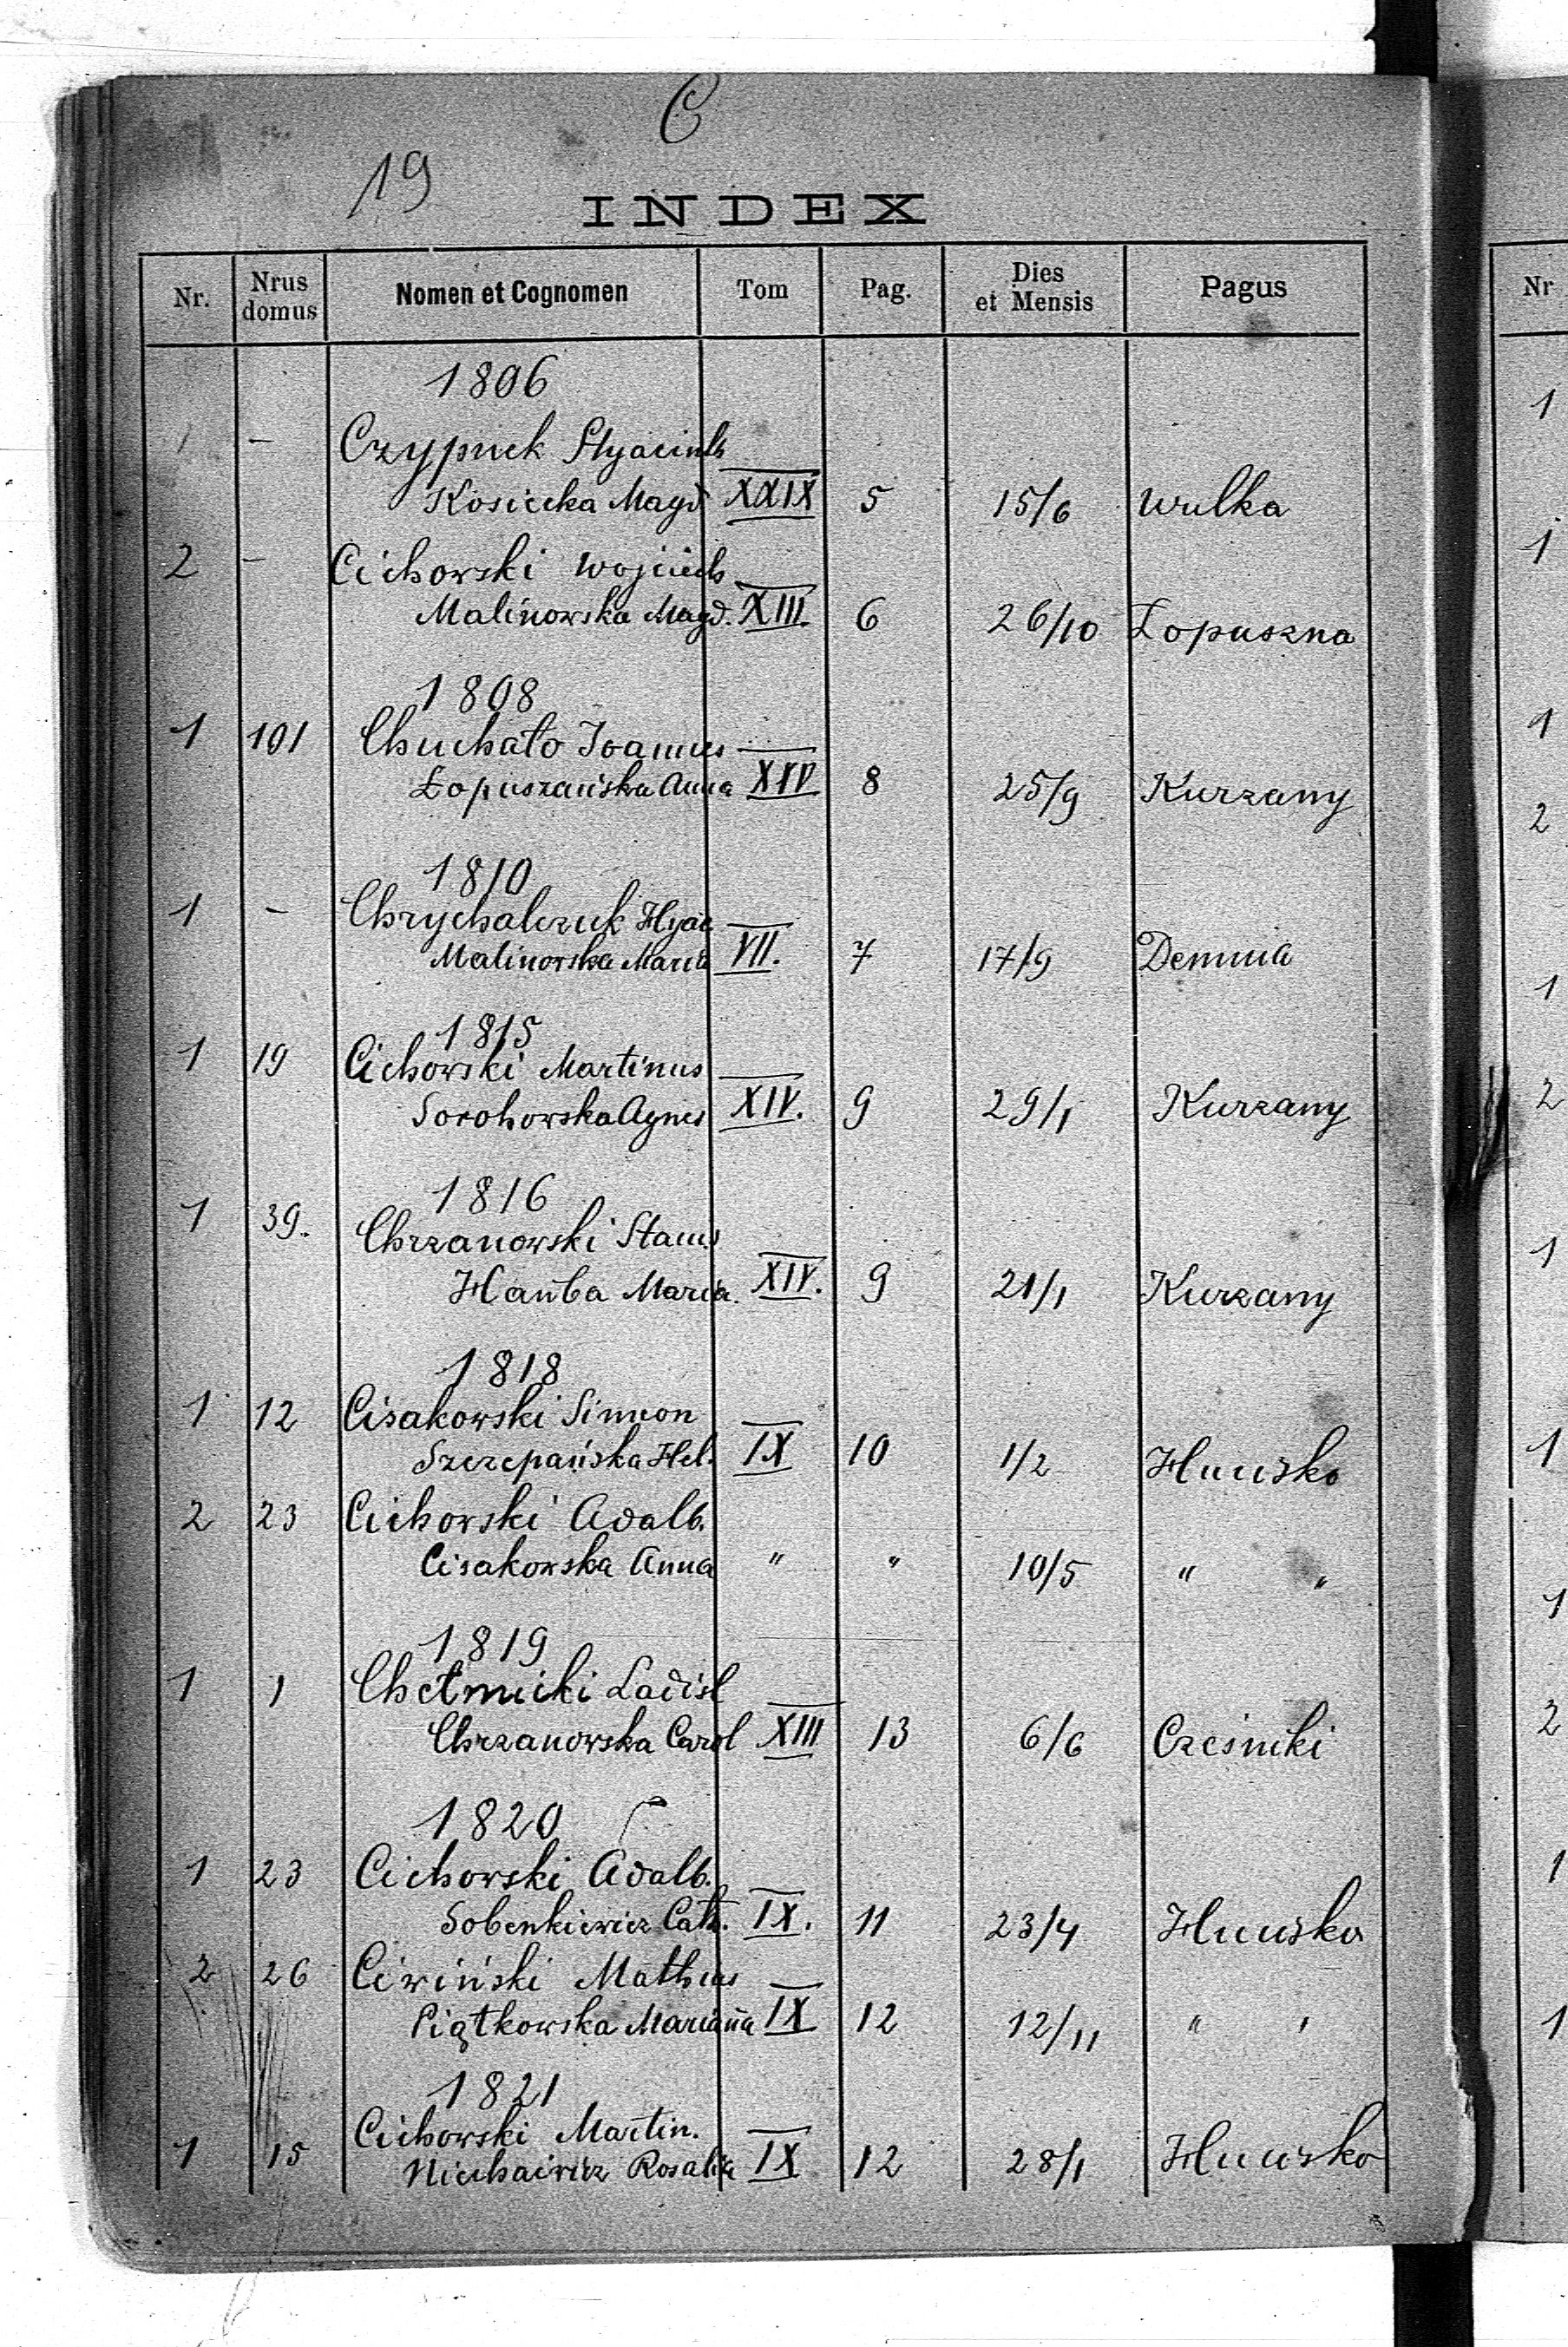 C
19
INDEX
Nr. Nrus domus Nomen et Cognomen Tom Pag. Dies et Mensis Pagus Nr
1806
1 – Czypuck Hyacinth
Kosicka Magd XXIX 5 15/6 Wulka
2 – Cichowski Wojciech
Malinowska Magd. XIII 6 26/10 Łopuszna
1808
1 101 Chuchało Joannes
Łopuszańska Anna XIV 8 25/9 Kurzany
1810
1 – Chrychalczuk Hyac
Malinowska Maria VII. 7 17/9 Demnia
1815
1 19 Cichowski Martinus
Sorohowska Agnes XIV. 9 29/1 Kurzany
1816
1 39. Chrzanowski Stanis
Hańba Maria. XIV. 9 21/1 Kurzany
1818
1 12 Cisakowski Simeon
Szczepańska Hel. IX 10 1/2 Hucisko
2 23 Cichowski Adalb.
Cisakowska Anna " " 10/5 " "
1819
1 1 Chełmicki Ladisl
Chrzanowska Carol XIII 13 6/6 Cześniki
1820
1 23 Cichowski Adalb.
Sobenkiewicz Cath. IX. 11 23/4 Hucisko
2 26 Ciwiński Matheus
Piątkowska Marianna IX 12 12/11 " "
1821
1 15 Cichowski Martin.
Rosalia IX 12 28/1 Hucisko
1
1
1
2
1
2
1
1
1
2
1
1